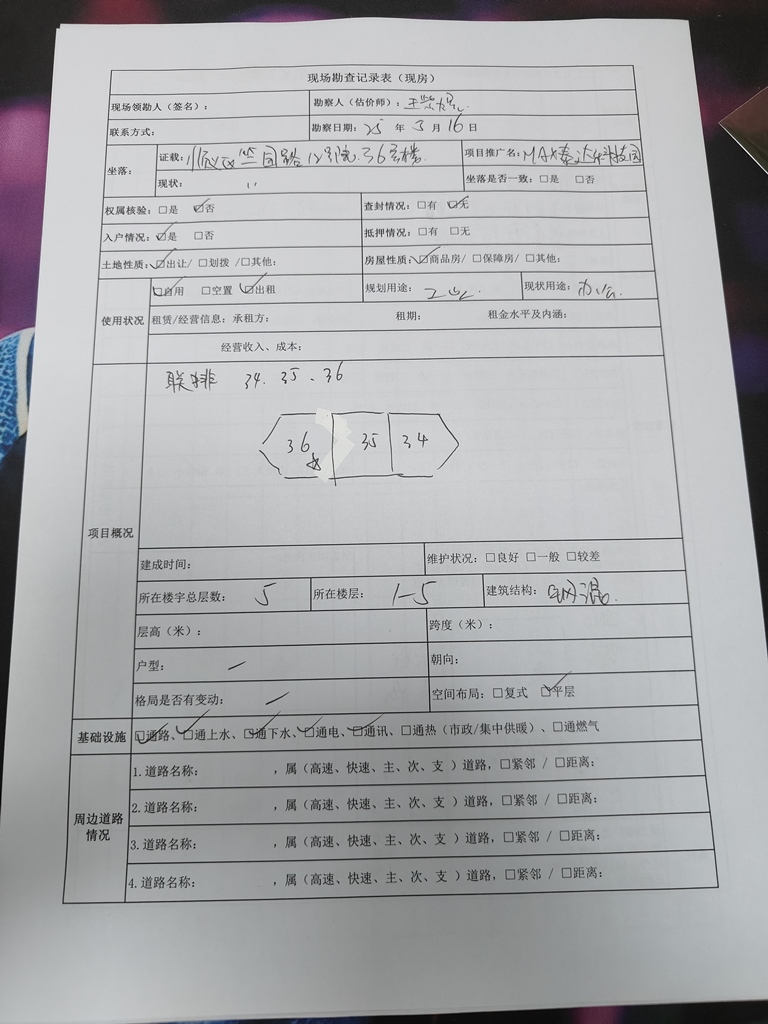 现场勘查记录表（现房）
现场领勘人（签名）： 勘察人（估价师）：王
联系方式： 勘察日期：25 年 3 月 16 日
坐落： 证载：竺园路12号院36号楼 项目推广名：MAX泰达科技园
现状：〃 坐落是否一致：□是 □否
权属核验：□是 ☑否 查封情况：□有 ☑无
入户情况：☑是 □否 抵押情况：□有 □无
土地性质：☑出让/ □划拨 /□其他： 房屋性质：☑商品房/ □保障房/ □其他：
使用状况 ☑自用 □空置 ☑出租 规划用途：工业 现状用途：办公
租赁/经营信息：承租方： 租期： 租金水平及内涵：
经营收入、成本：
项目概况
联排 34. 35、36
36 35 34
建成时间： 维护状况：□良好 □一般 □较差
所在楼宇总层数：5 所在楼层：1-5 建筑结构：钢混
层高（米）： 跨度（米）：
户型：/ 朝向：
格局是否有变动：/ 空间布局：□复式 ☑平层
基础设施 ☑通路、☑通上水、☑通下水、☑通电、☑通讯、□通热（市政/集中供暖）、□通燃气
周边道路情况
1.道路名称： ，属（高速、快速、主、次、支 ）道路，□紧邻 / □距离：
2.道路名称： ，属（高速、快速、主、次、支 ）道路，□紧邻 / □距离：
3.道路名称： ，属（高速、快速、主、次、支 ）道路，□紧邻 / □距离：
4.道路名称： ，属（高速、快速、主、次、支 ）道路，□紧邻 / □距离：